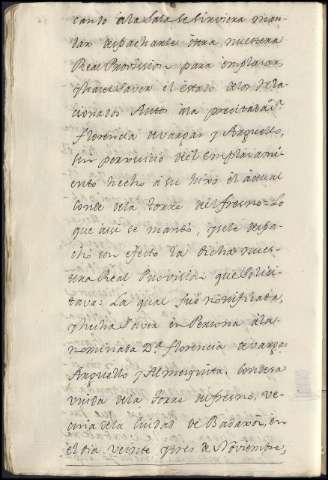 canto á la Sala se sirviera man-
dar despacharle otra nuestra
Real Provision para emplazar,
y hacer saver el estado de los rela-
cionados Autos á la precitada D.ª
Florencia de vargas y Arguello,
sin perjuicio del Emplazami-
ento hecho á su hixo el actual
Conde de la Torre del fresno = Lo
que assi se mandó, y se le despa-
chó con efecto la dicha nues-
tra Real Provision que solici-
tava: La qual fue notificada,
y hecha saver en Persona á la
nominada D.ª Florencia de vargas
Arguello y Almesquita, Condesa
viuda de la Torre del fresno, ve-
cina de la Ciudad de Badaxoz, en
el dia veinte y tres de Noviembre,